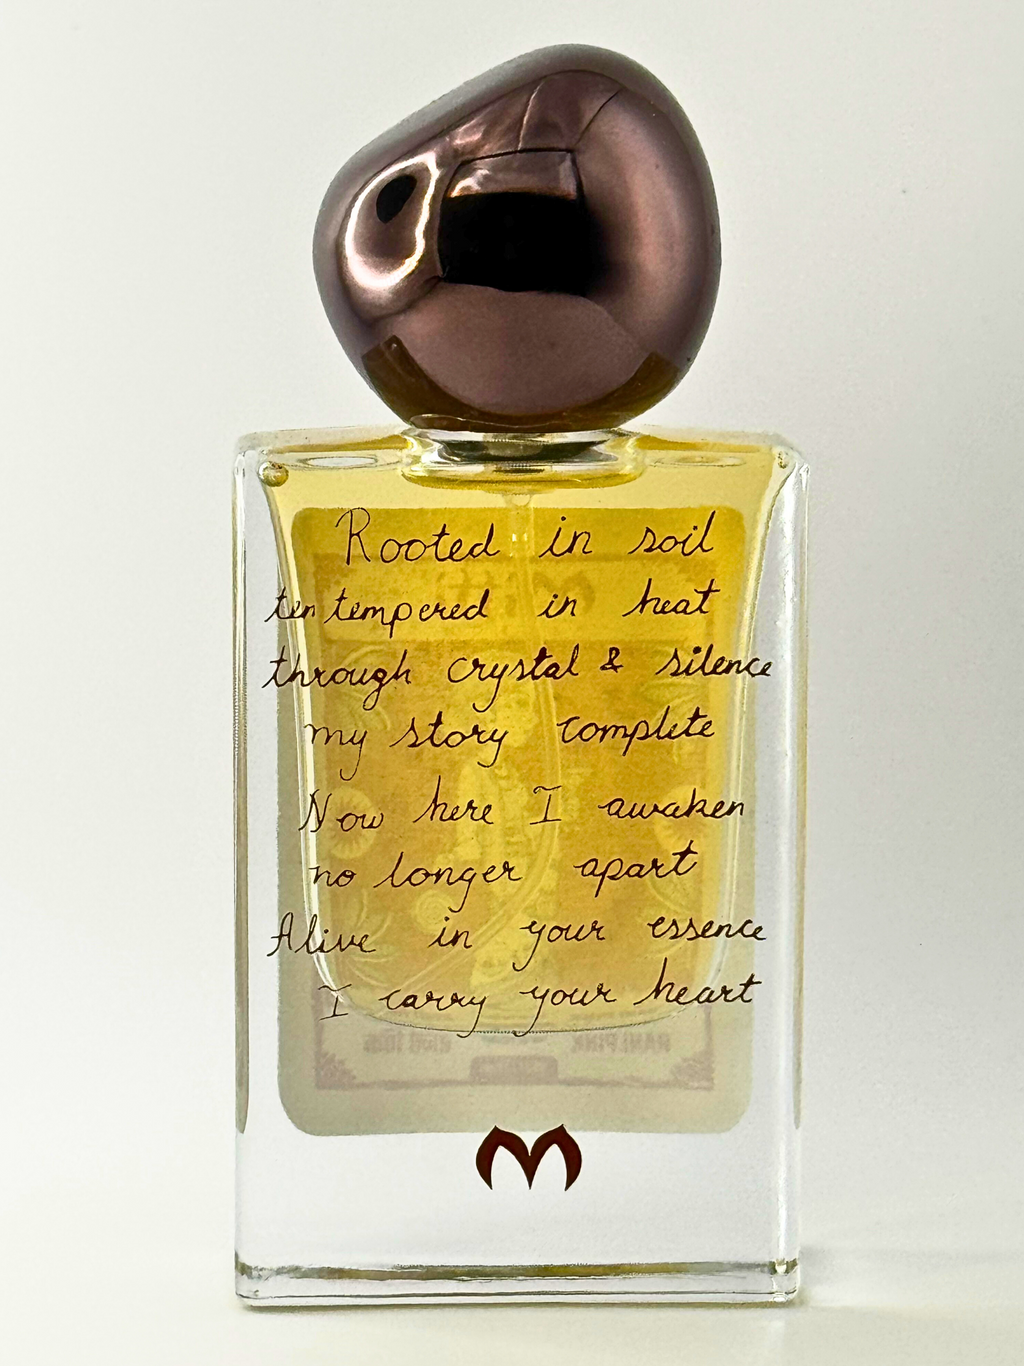 Rooted in soil
ten tempered in heat
through crystal & silence
my story complete
Now here I awaken
no longer apart
Alive in your essence
I carry your heart
RANI PINK
M